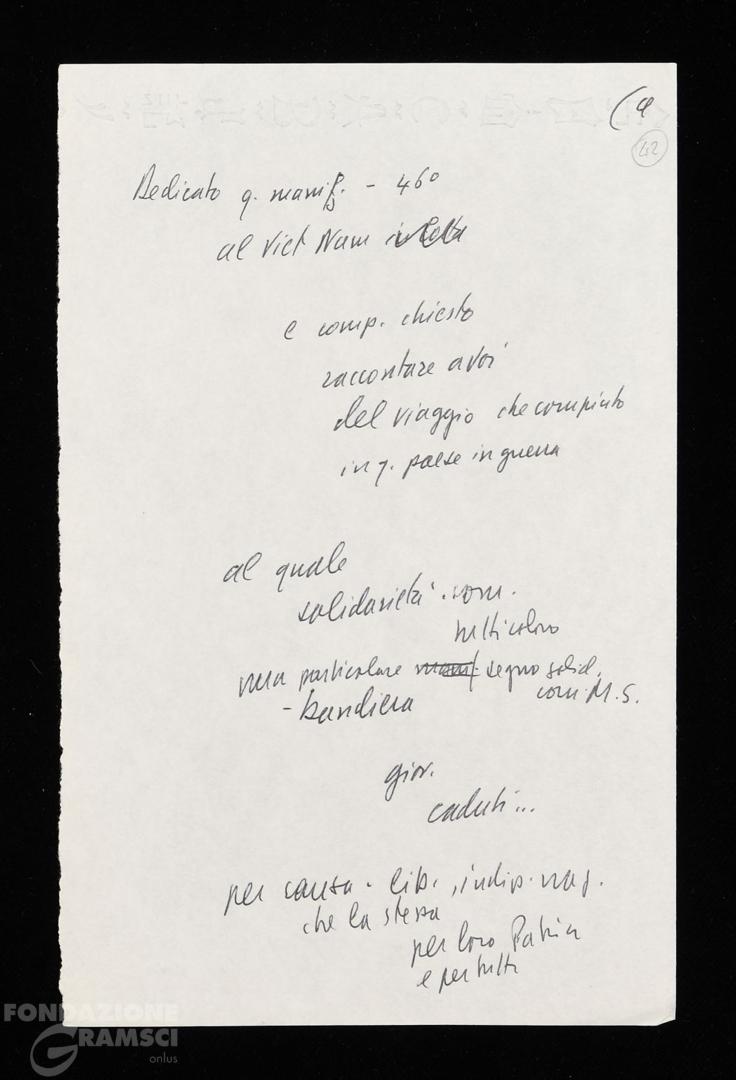 42
Dedicato q. manif. - 46º
al Viet Nam in lotta
e comp. chiesto
raccontare a voi
del viaggio che compiuto
in q. paese in guerra
al quale
solidarietà com.
tutti coloro
una particolare segno solid.
- bandiera com. M. S.
giov.
caduti...
per causa - lib., indip. naz.
che la stessa
per loro Patria
e per tutti
FONDAZIONE
GRAMSCI
onlus